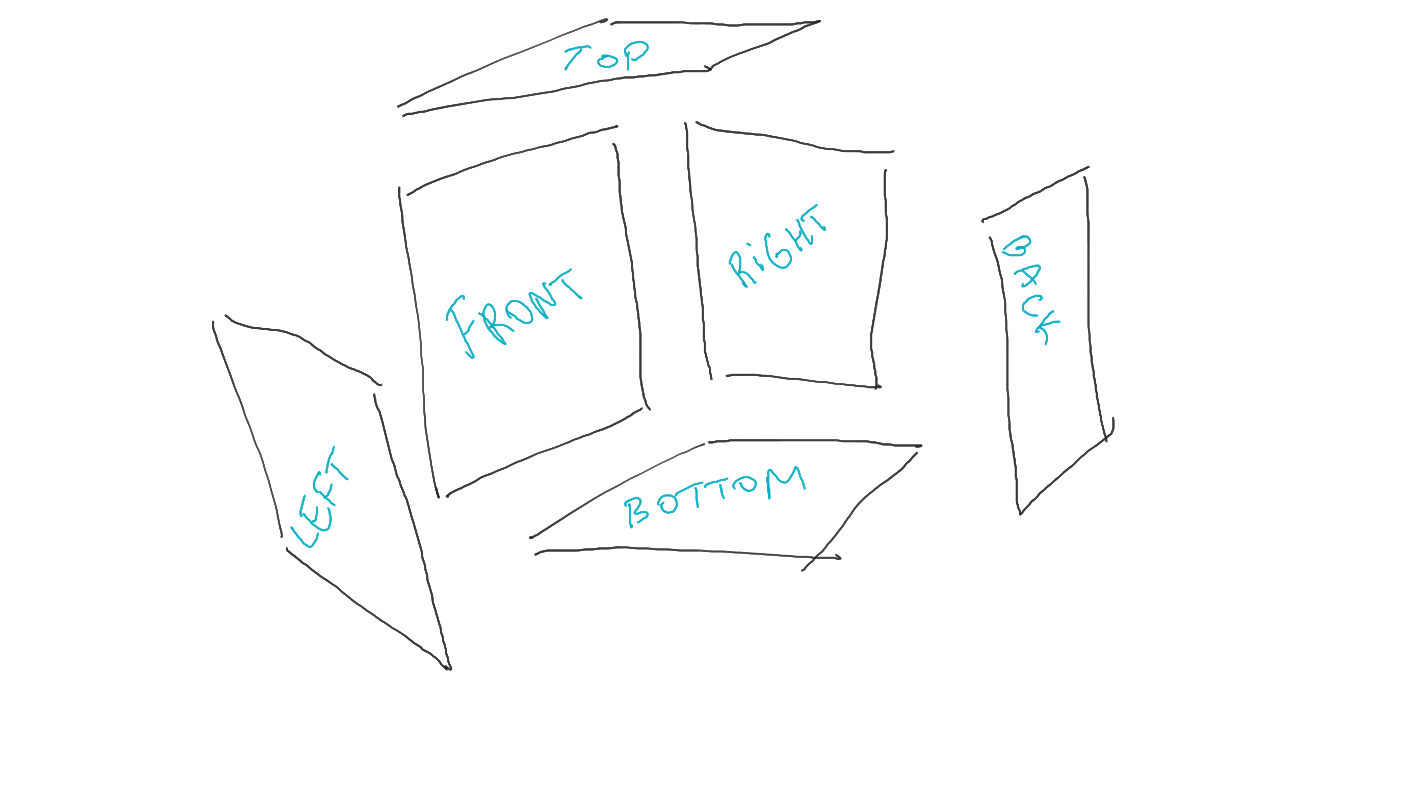 TOP
FRONT
RiGHT
BACK
LEFT
BOTTOM